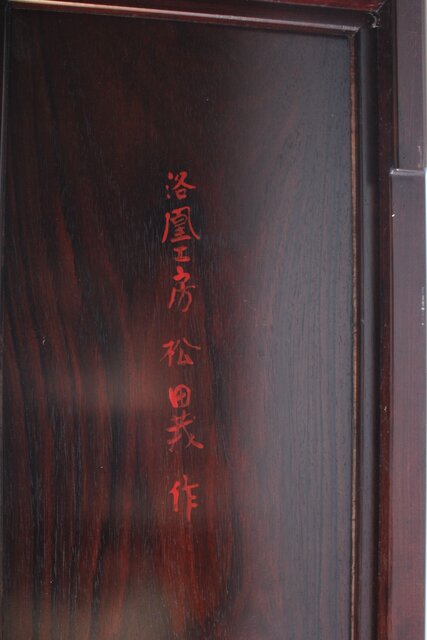 洛凰工房 松田義 作